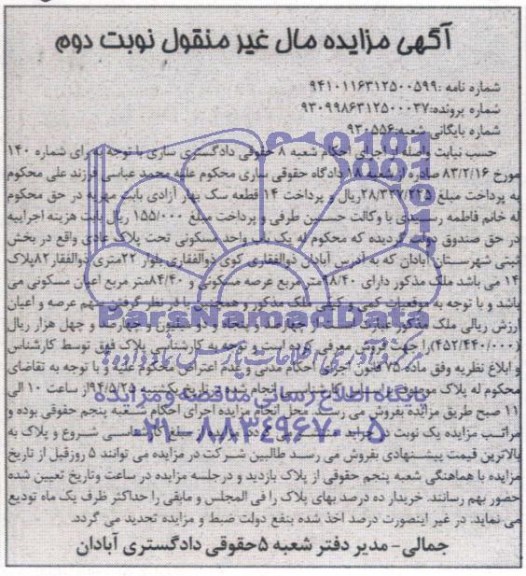 آگهی مزایده مال غیر منقول نوبت دوم
شماره نامه :۹۴۱۰۱۱۶۳۱۲۵۰۰۵۹۹
شماره پرونده:۹۳۰۹۹۸۶۳۱۲۵۰۰۰۳۷
شماره بایگانی شعبه:۹۳۰۵۵۶
حسب نیابت واصله از اجرای احکام شعبه ۸ حقوقی دادگستری ساری با توجه به رای شماره ۱۴۰
مورخ ۸۳/۲/۱۶ صادره از شعبه ۱۸ دادگاه حقوقی ساری محکوم علیه محمد عباسی فرزند علی محکوم
به پرداخت مبلغ ریال و پرداخت ۱۴ قطعه سکه بهار آزادی بابت مهریه در حق محکوم
له خانم فاطمه با وکالت حسین طرفی و پرداخت مبلغ ۱۵۵/۰۰۰ ریال بابت هزینه اجراییه
در حق صندوق دولت گردیده که محکوم له یک باب واحد مسکونی تحت پلاک عادی واقع در بخش
ثبتی شهرستان آبادان که به آدرس آبادان ذوالفقاری کوی ذوالفقاری بلوار ۲۲متری ذوالفقار ۸۲پلاک
۱۴ می باشد ملک مذکور دارای ۲۸/۲۰متر مربع عرصه مسکونی و ۸۴/۴۰متر مربع اعیان مسکونی می
باشد و با توجه به موقعیت کمی و کیفی ملک مذکور و همچنین با در نظر گرفتن سهم عرصه و اعیان
ارزش ریالی ملک مذکور چهارصد و پنجاه و دو میلیون و چهارصد و چهل هزار ریال
(۴۵۲/۴۴۰/۰۰۰) را جهت فروش معرفی کرده است و توجه به کارشناسی پلاک فوق توسط کارشناس
و ابلاغ نظریه وفق ماده ۷۵ قانون اجرای احکام مدنی و عدم اعتراض محکوم علیه و با توجه به تقاضای
محکوم له پلاک موصوف کارشناسی انجام شده در تاریخ یکشنبه ۹۴/۵/۲۵ از ساعت ۱۰ الی
۱۱ صبح طریق مزایده بفروش می رسد. محل انجام مزایده اجرای احکام شعبه پنجم حقوقی بوده و
مراتب مزایده یک نوبت در جراید کارشناسی شروع و پلاک به
بالاترین قیمت پیشنهادی بفروش می رسد طالبین شرکت در مزایده می توانند ۵ روزقبل از تاریخ
مزایده با هماهنگی شعبه پنجم حقوقی از پلاک بازدید و درجلسه مزایده در ساعت وتاریخ تعیین شده
حضور بهم رسانند. خریدار ده درصد بهای پلاک را فی المجلس و مابقی را حداکثر ظرف یک ماه تودیع
می نماید. در غیر اینصورت درصد اخذ شده بنفع دولت ضبط و مزایده تجدید می گردد.
جمالی- مدیر دفتر شعبه ۵حقوقی دادگستری آبادان
ParsNamadData
مرکز فرآوری اطلاعات پارس نماد داده ها
پایگاه اطلاع رسانی مناقصه و مزایده
۰۲۱-۸۸۳۴۹۶۷۰-۵